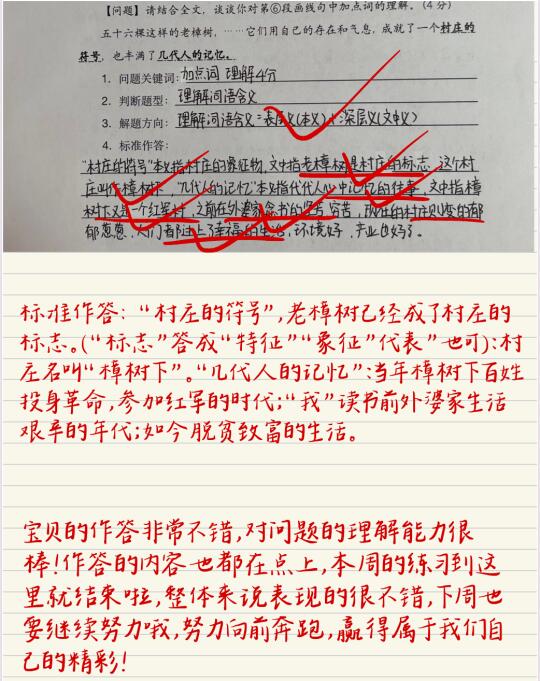 【问题】请结合全文，谈谈你对第⑥段画线句中加点词的理解。(4分)
五十六棵这样的老樟树，……它们用自己的存在和气息，成就了一个村庄的
符号，也丰满了几代人的记忆。
1. 问题关键词：加点词 理解 4分
2. 判断题型：理解词语含义
3. 解题方向：理解词语含义=表层义(本义)+深层义(文中义)
4. 标准作答：
"村庄的符号"本义指村庄的象征物，文中指老樟树是村庄的标志，这个村
庄叫作樟树下，"几代人的记忆"本义指代代人心中记忆的往事，文中指樟
树下又是个红军村，之前在外婆家念书的 穷苦，现在的村庄则变的郁
郁葱葱，人们都过上了幸福的生活，环境好，产业也好了。
标准作答："村庄的符号"，老樟树已经成了村庄的
标志。("标志"答成"特征""象征"代表"也可)：村
庄名叫"樟树下"。"几代人的记忆"：当年樟树下百姓
投身革命，参加红军的时代；"我"读书前外婆家生活
艰辛的年代；如今脱贫致富的生活。
宝贝的作答非常不错，对问题的理解能力很
棒！作答的内容也都在点上，本周的练习到这
里就结束啦，整体来说表现的很不错，下周也
要继续努力哦，努力向前奔跑，赢得属于我们自
己的精彩！